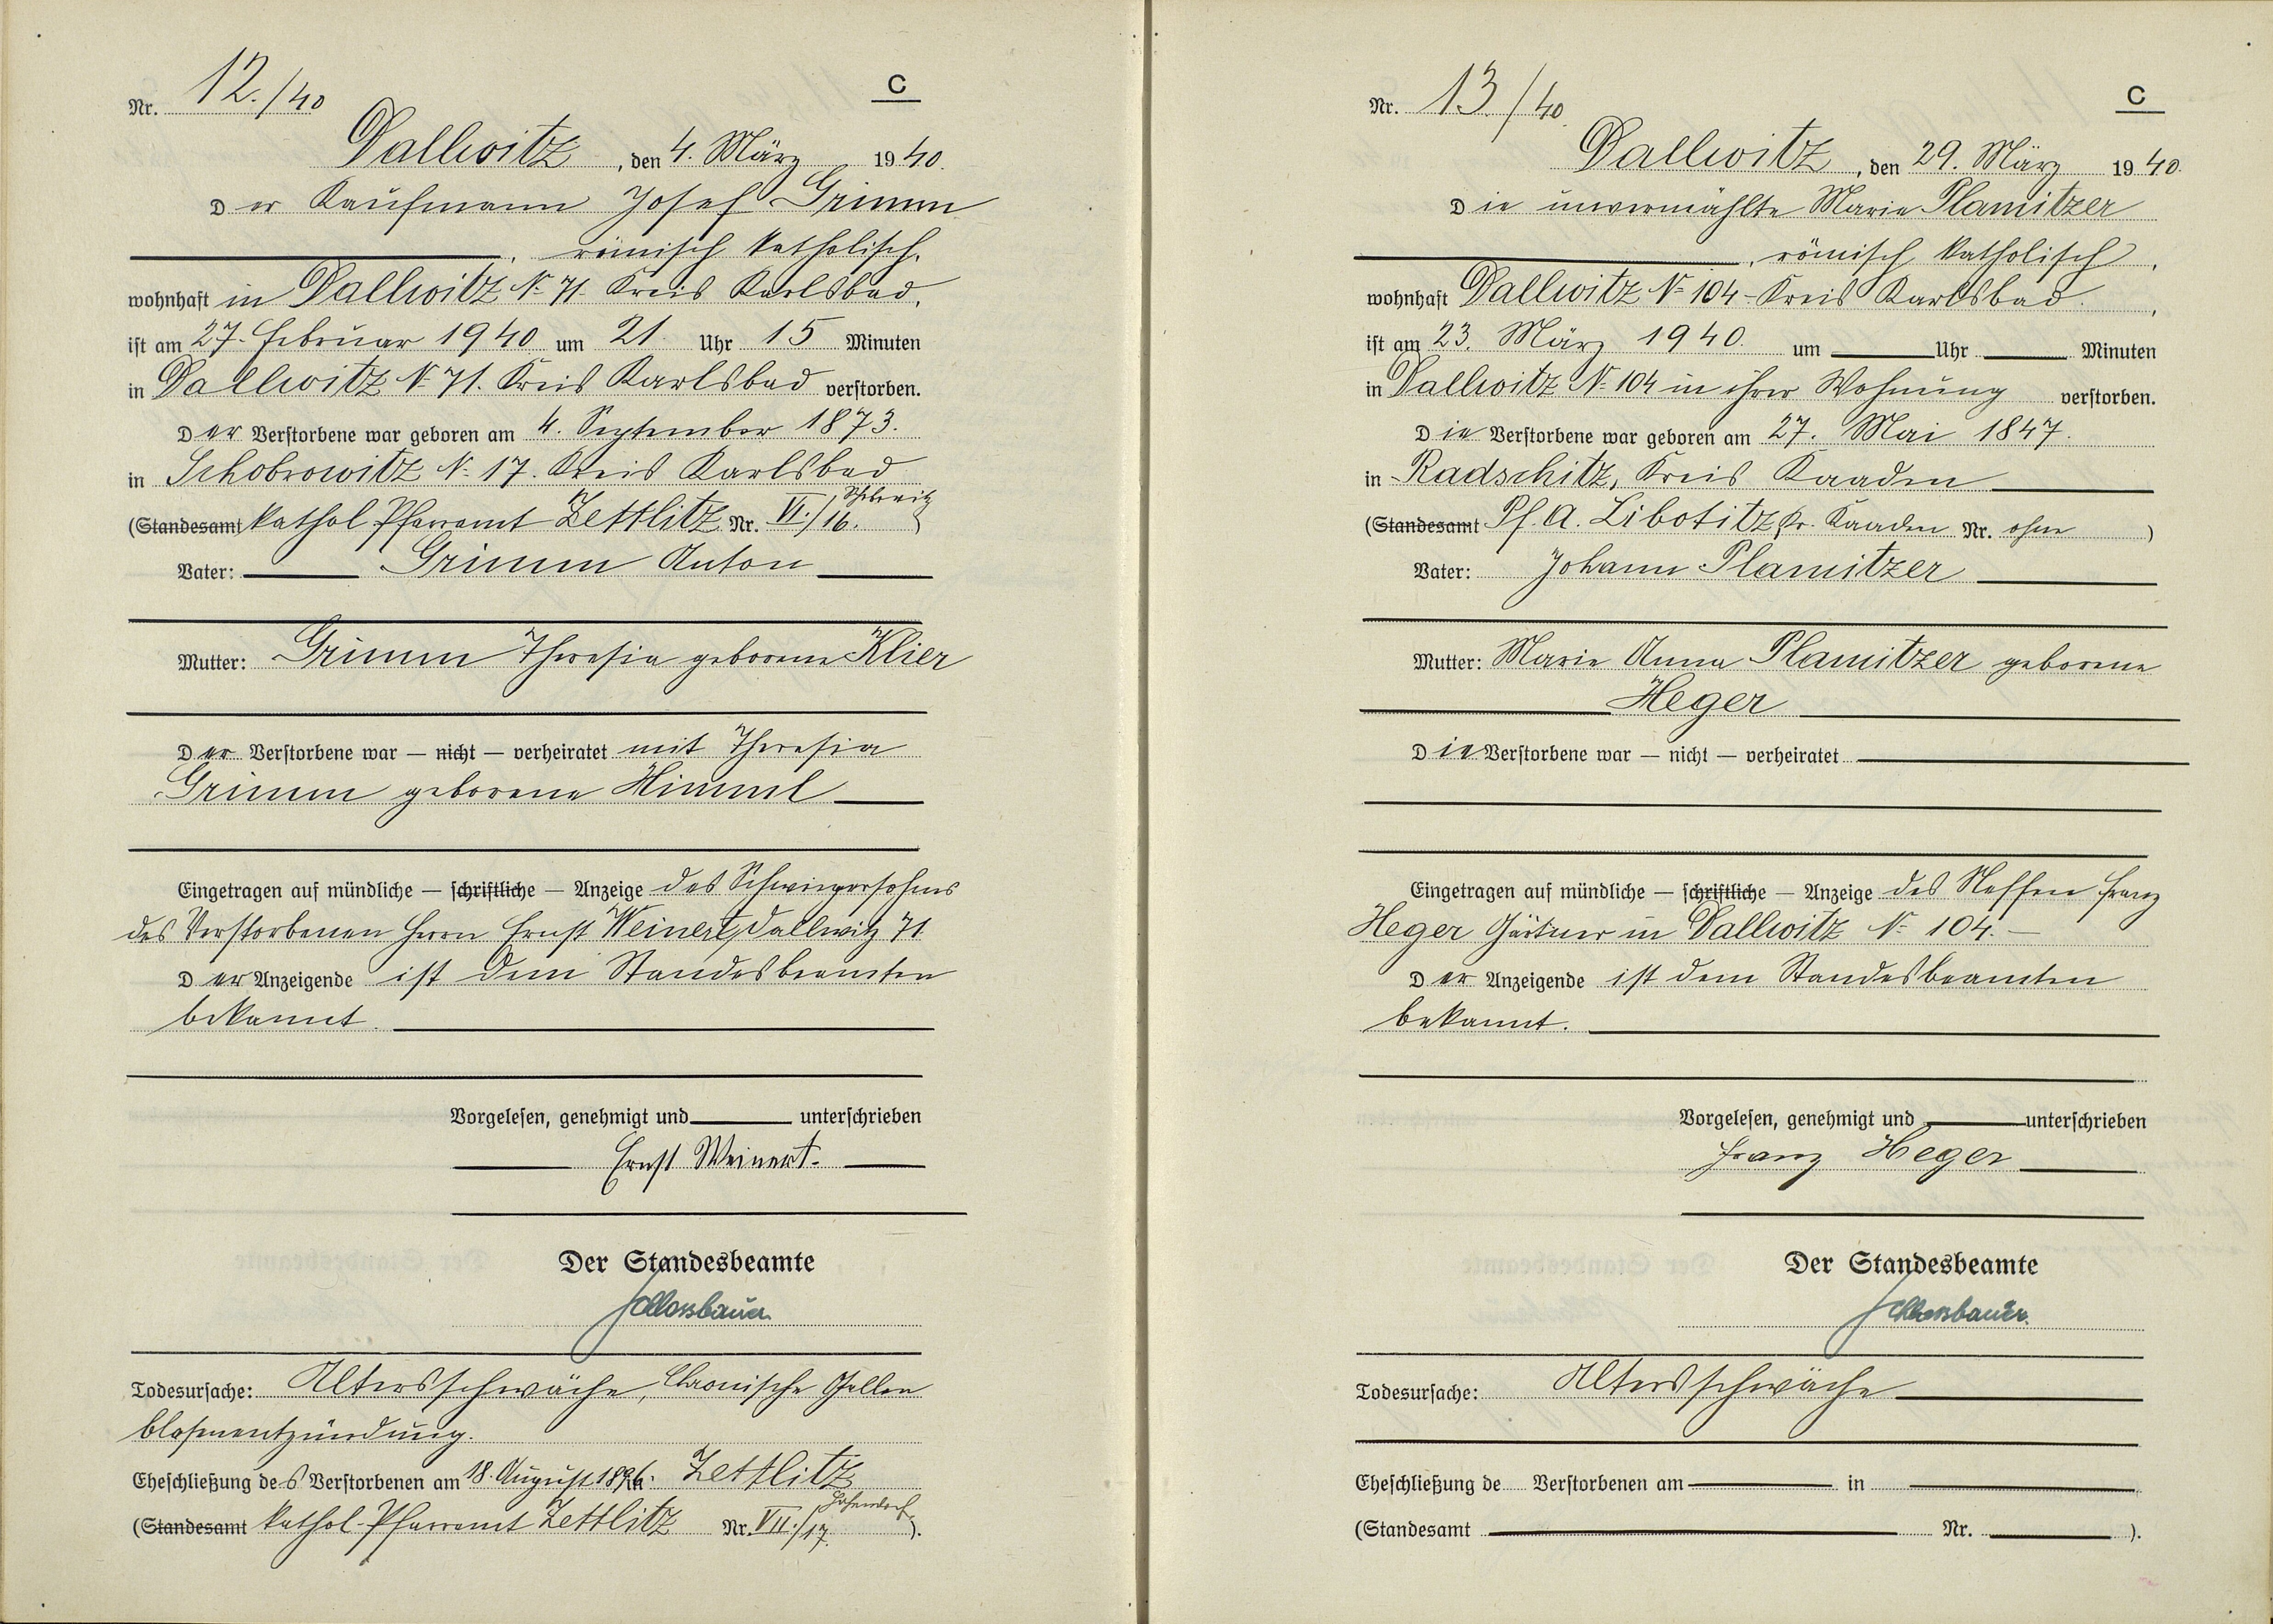 Nr. 12./40
C
Dallwitz, den 4. März 1940.
Der Kaufmann Josef Grimm
, römisch katholisch,
wohnhaft in Dallwitz N= 71. Kreis Karlsbad,
ist am 27. Februar 1940 um 21 Uhr 15 Minuten
in Dallwitz N= 71. Kreis Karlsbad verstorben.
Der Verstorbene war geboren am 4. September 1873.
in Schobrowitz N= 17. Kreis Karlsbad
(Standesamt kathol Pfarramt Zettlitz Nr. VI./16.
Vater: Grimm Anton
Mutter: Grimm Theresia geborene Klier
Der Verstorbene war — nicht — verheiratet mit Theresia
Grimm geborene Himml
Eingetragen auf mündliche — schriftliche — Anzeige des Schwiegersohnes
des Verstorbenen Herrn Ernst Weinert, Dallwitz 71
Der Anzeigende ist dem Standesbeamten
bekannt.
Vorgelesen, genehmigt und unterschrieben
Ernst Weinert.
Der Standesbeamte
Schlossbauer
Todesursache: Altersschwäche, Chronische Gallen
blasenentzündung.
Eheschließung des Verstorbenen am 18. August 1896. Zettlitz
(Standesamt kathol. Pfarramt Zettlitz Nr. VII./17. ).
Nr. 13/40
C
Dallwitz, den 29. März 1940.
Die unvermählte Marie Plamitzer
, römisch katholisch,
wohnhaft Dallwitz N= 104 - Kreis Karlsbad.,
ist am 23. März 1940. um Uhr Minuten
in Dallwitz N= 104 in ihrer Wohnung verstorben.
Die Verstorbene war geboren am 27. Mai 1847.
in Radschitz, Kreis Kaaden
(Standesamt Pf. A. Libotitz, Kr. Kaaden Nr. ohne )
Vater: Johann Plamitzer
Mutter: Marie Anna Plamitzer geborene
Heger
Die Verstorbene war — nicht — verheiratet
Eingetragen auf mündliche — schriftliche — Anzeige des Neffen Franz
Heger Gärtner in Dallwitz N= 104. —
Der Anzeigende ist dem Standesbeamten
bekannt.
Vorgelesen, genehmigt und unterschrieben
Franz Heger
Der Standesbeamte
Schlossbauer.
Todesursache: Altersschwäche
Eheschließung de Verstorbenen am in
(Standesamt Nr. ).